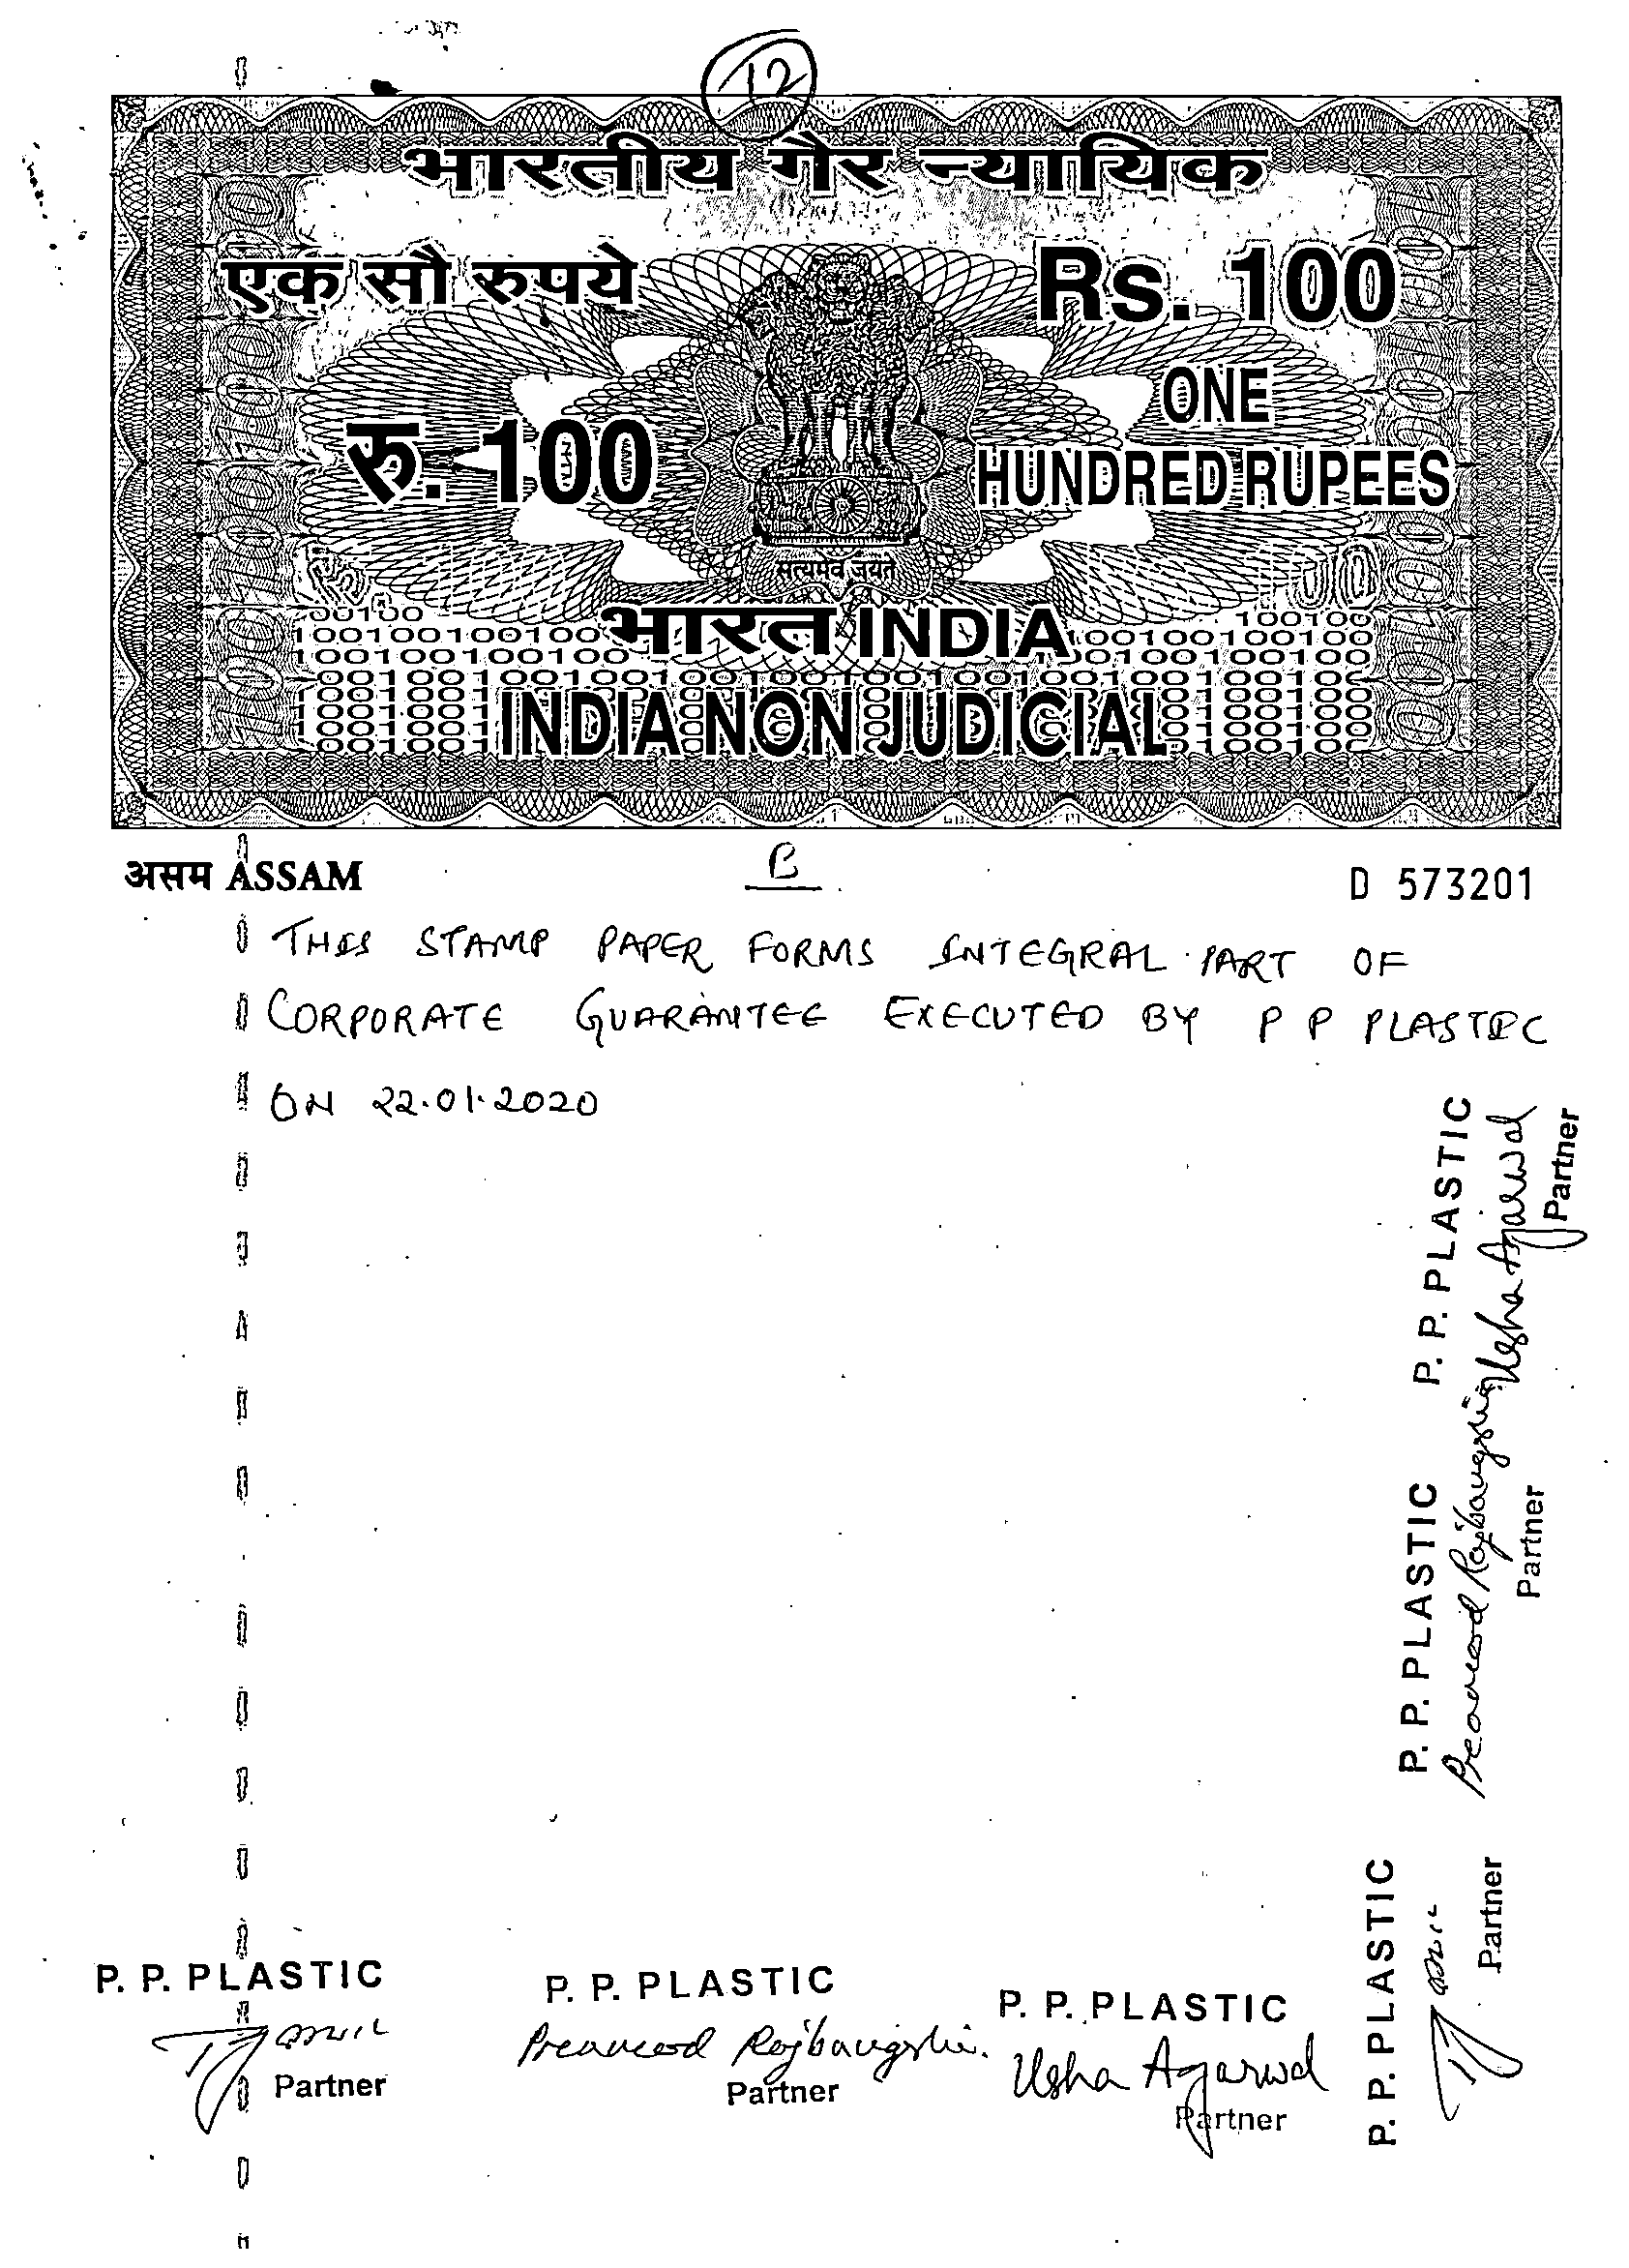 12
भारतीय गैर न्यायिक
एक सौ रुपये
Rs. 100
रु. 100
ONE
HUNDRED RUPEES
सत्यमेव जयते
भारत INDIA
INDIA NON JUDICIAL
असम ASSAM
B
D 573201
THIS STAMP PAPER FORMS INTEGRAL PART OF
CORPORATE GUARANTEE EXECUTED BY P P PLASTIC
ON 22.01.2020
P. P. PLASTIC
Usha Agarwal
Partner
P. P. PLASTIC
Rajbangshi
Partner
P. P. PLASTIC
Partner
P. P. PLASTIC
Partner
P. P. PLASTIC
Rajbangshi.
Partner
P. P. PLASTIC
Usha Agarwal
Partner